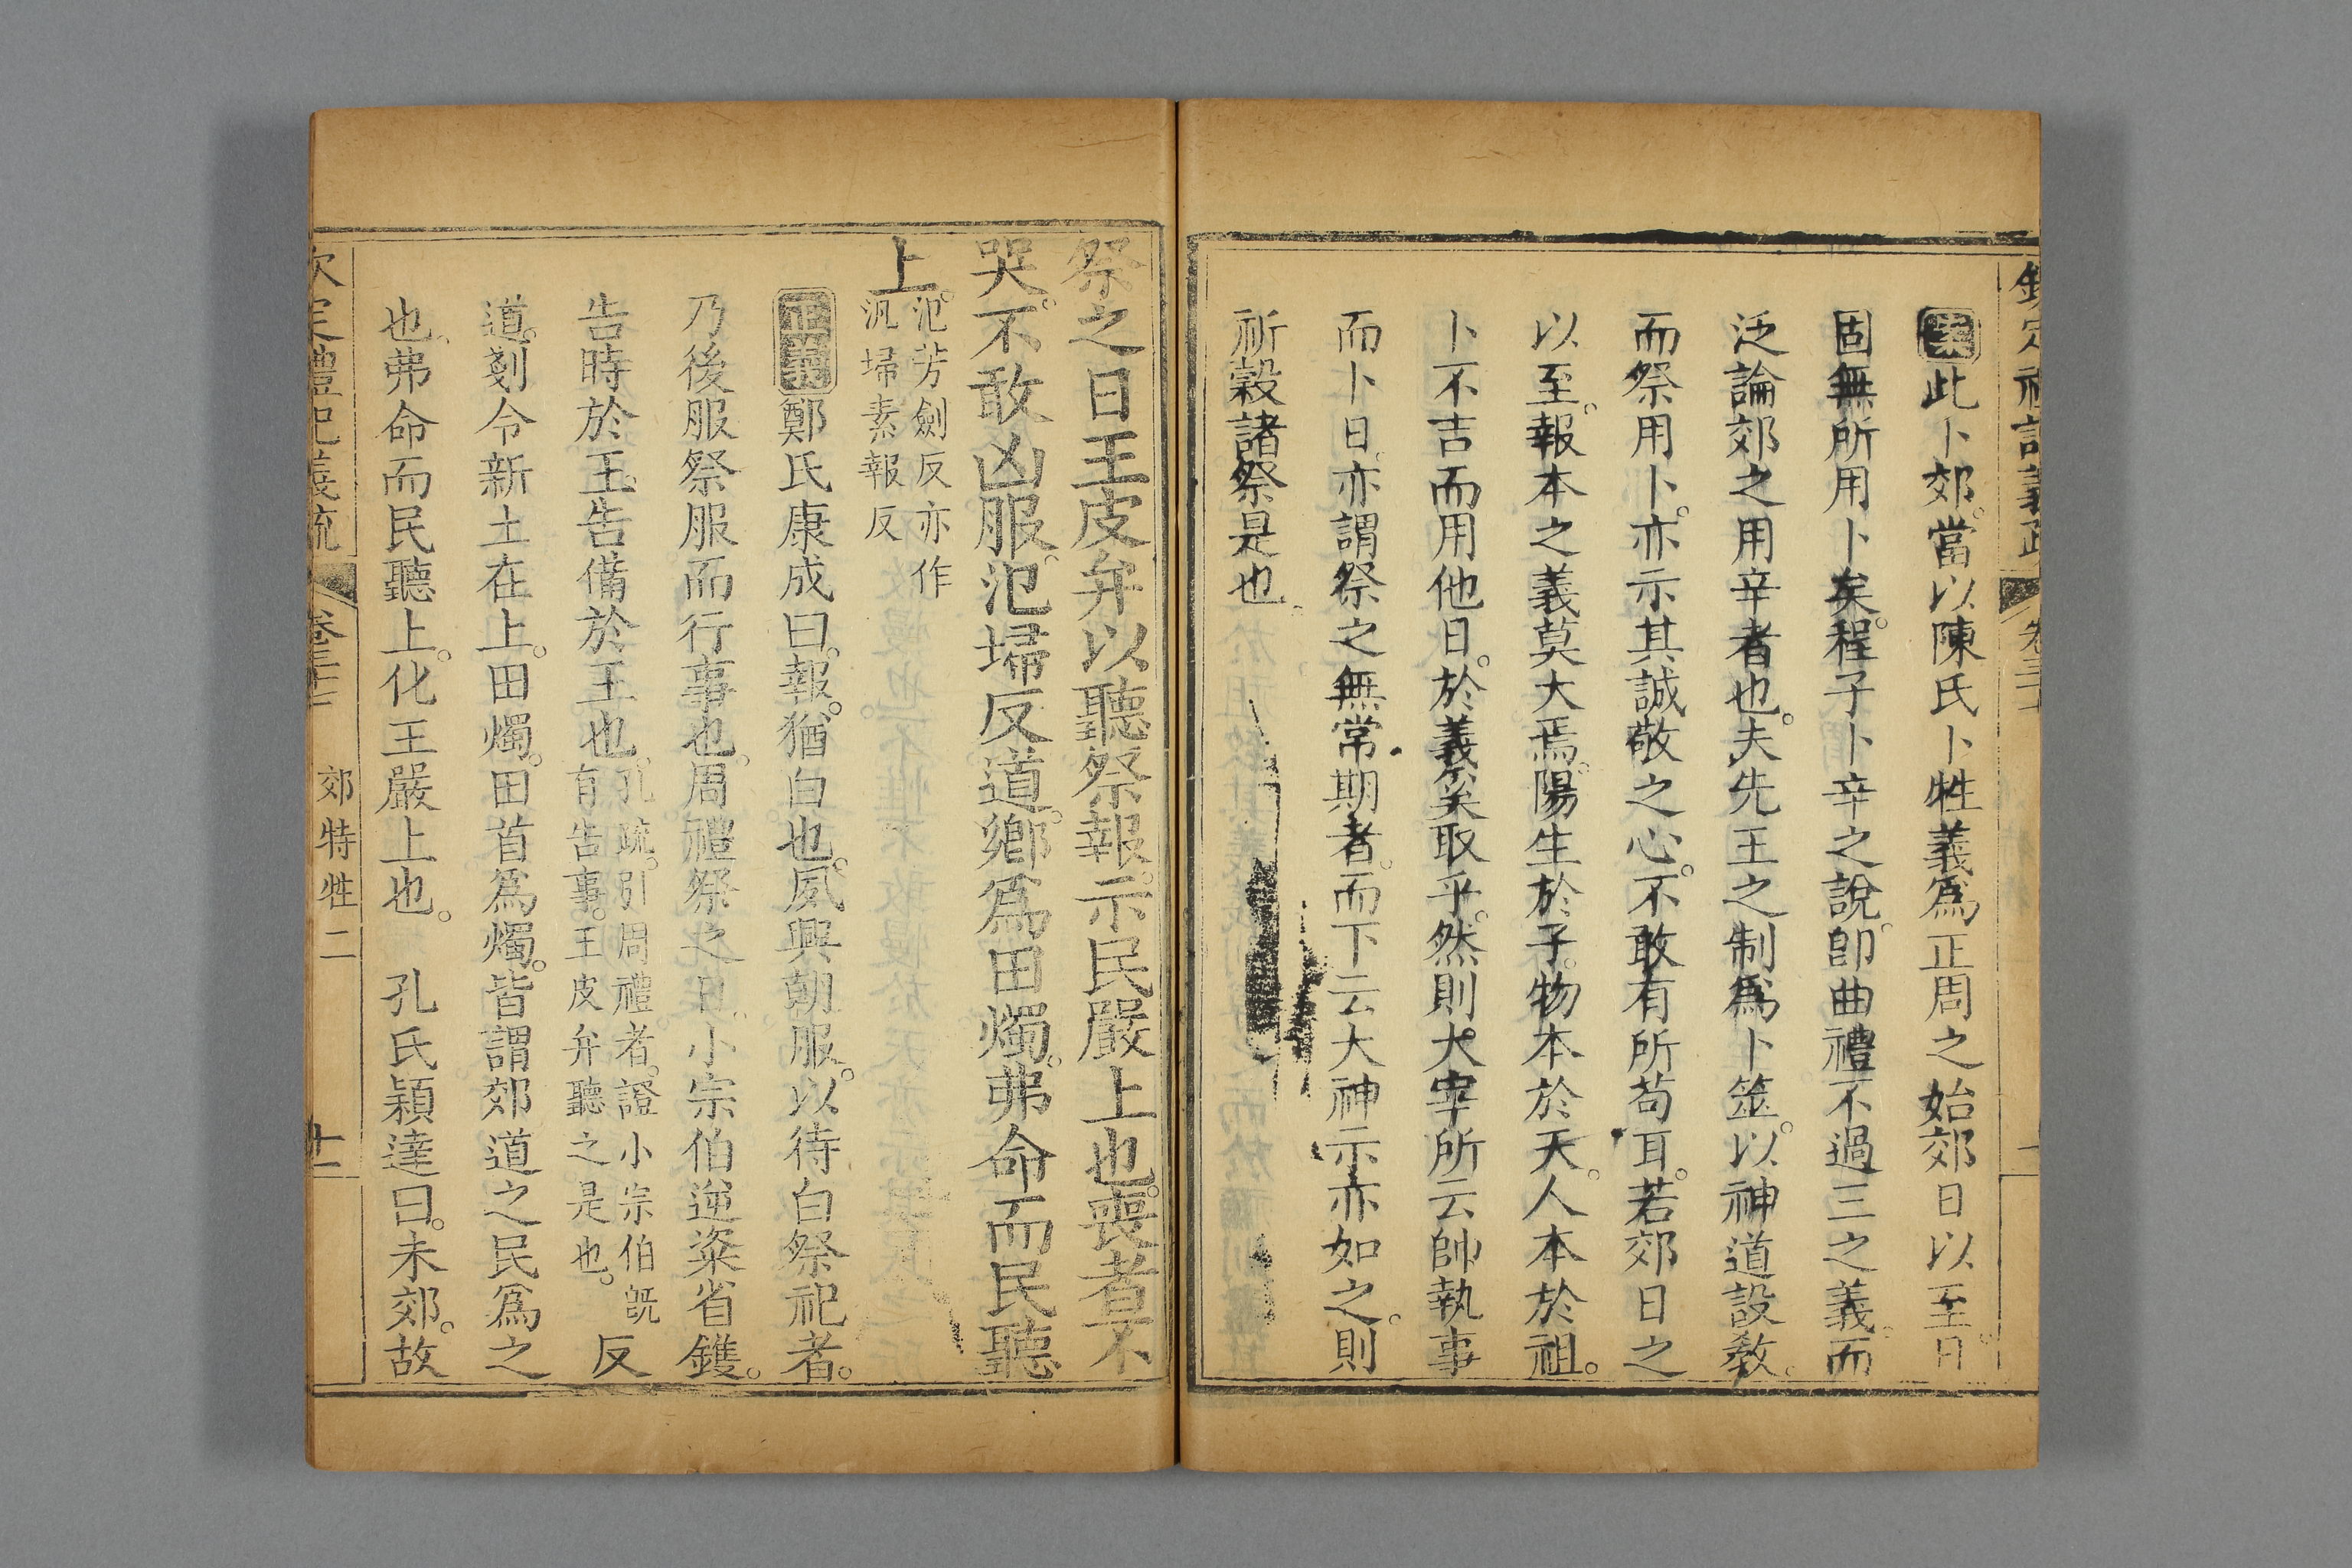 欽定禮記義疏 卷三十
案此卜郊。當以陳氏卜牲義爲正周之始郊日以至。日
固無所用卜矣。程子卜辛之說。卽曲禮不過三之義。而
泛論郊之用辛者也。夫先王之制爲卜筮。以神道設敎。
而祭用卜。亦示其誠敬之心。不敢有所苟耳。若郊日之
以至。報本之義莫大焉。陽生於子。物本於天。人本於祖。
卜不吉而用他日。於義奚取乎。然則大宰所云帥執事
而卜日。亦謂祭之無常期者。而下云大神示亦如之。則
祈穀諸祭是也。
祭之日王皮弁以聽祭報。示民嚴上也。喪者不
哭。不敢凶服。氾埽反道。鄉爲田燭。弗命而民聽
上。氾芳劍反亦作
汎埽素報反
正義鄭氏康成曰。報。猶白也。夙興朝服。以待白祭祀者。
乃後服祭服而行事也。周禮祭之日。小宗伯逆粢省鑊。
告時於王。告備於王也。孔疏。引周禮者。證小宗伯旣
有告事。王皮弁聽之是也。反
道。剗令新土在上。田燭。田首爲燭。皆謂郊道之民爲之
也。弗命而民聽上。化王嚴上也。 孔氏穎達曰。未郊。故
欽定禮記義疏 卷三十 郊特牲二 十二